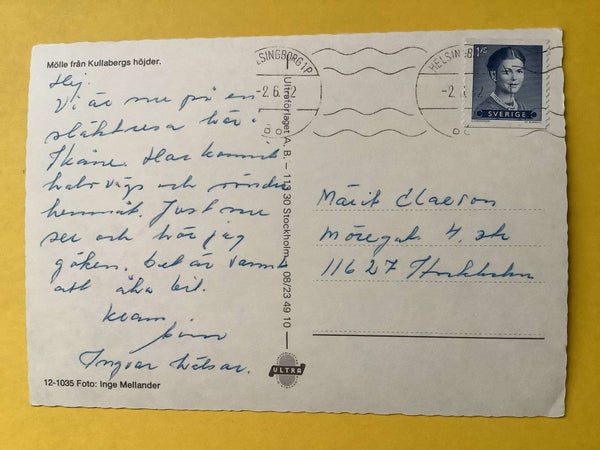 Mölle från Kullabergs höjder.
Hej.
Vi är nu på en
släktresa här i
Skåne. Har kommit
halvvägs och vänder
hemmåt. Just nu
ser och hör jag
göken. Det är varmt
att åka bil.
Kram
Ingvar hälsar.
12-1035 Foto: Inge Mellander
Ultraförlaget A. B. — 113 30 Stockholm — 08/23 49 10 —
ULTRA
HELSINGBORG
-2.
SVERIGE
LSINGBORG1P
-2.6. 2
Märit Claeson
Möregat. 4,
116 27 Stockholm